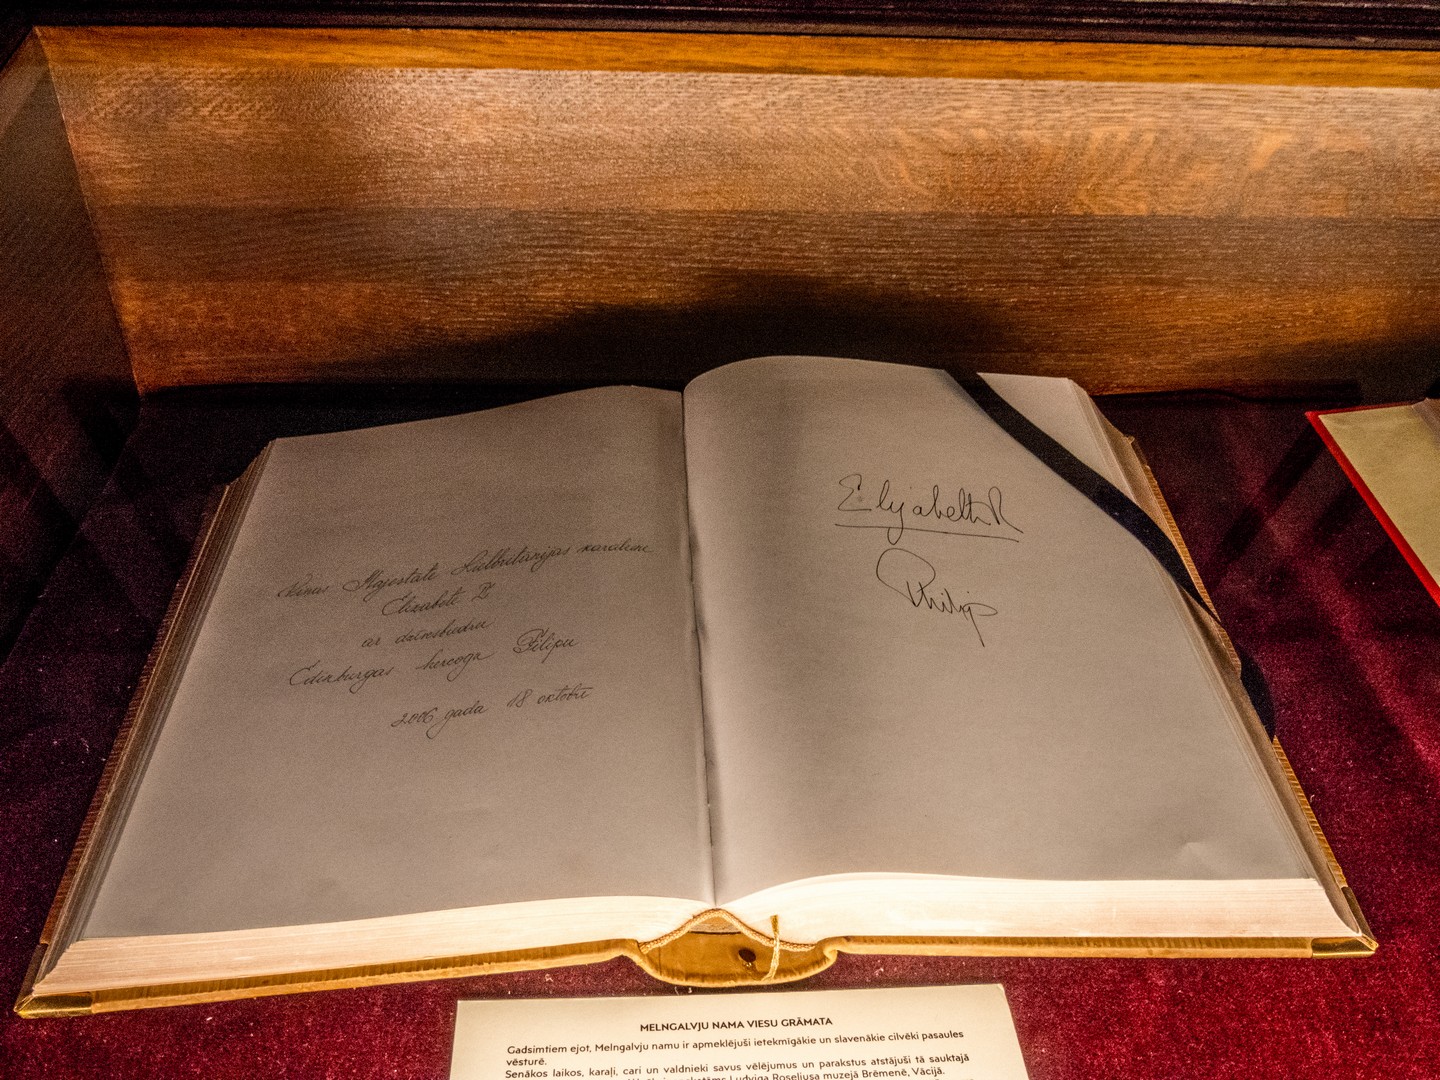 Viņas Majestāte Lielbritānijas karaliene
Elizabete II
ar dzīvesbiedru
Edinburgas hercogu Filipu
2006 gada 18 oktobrī
Elizabeth R
Philip
MELNGALVJU NAMA VIESU GRĀMATA
Gadsimtiem ejot, Melngalvju namu ir apmeklējuši ietekmīgākie un slavenākie cilvēki pasaules
vēsturē.
Senākos laikos, karaļi, cari un valdnieki savus vēlējumus un parakstus atstājuši tā sauktajā
Ludviga Roseliusa muzejā Brēmenē, Vācijā.